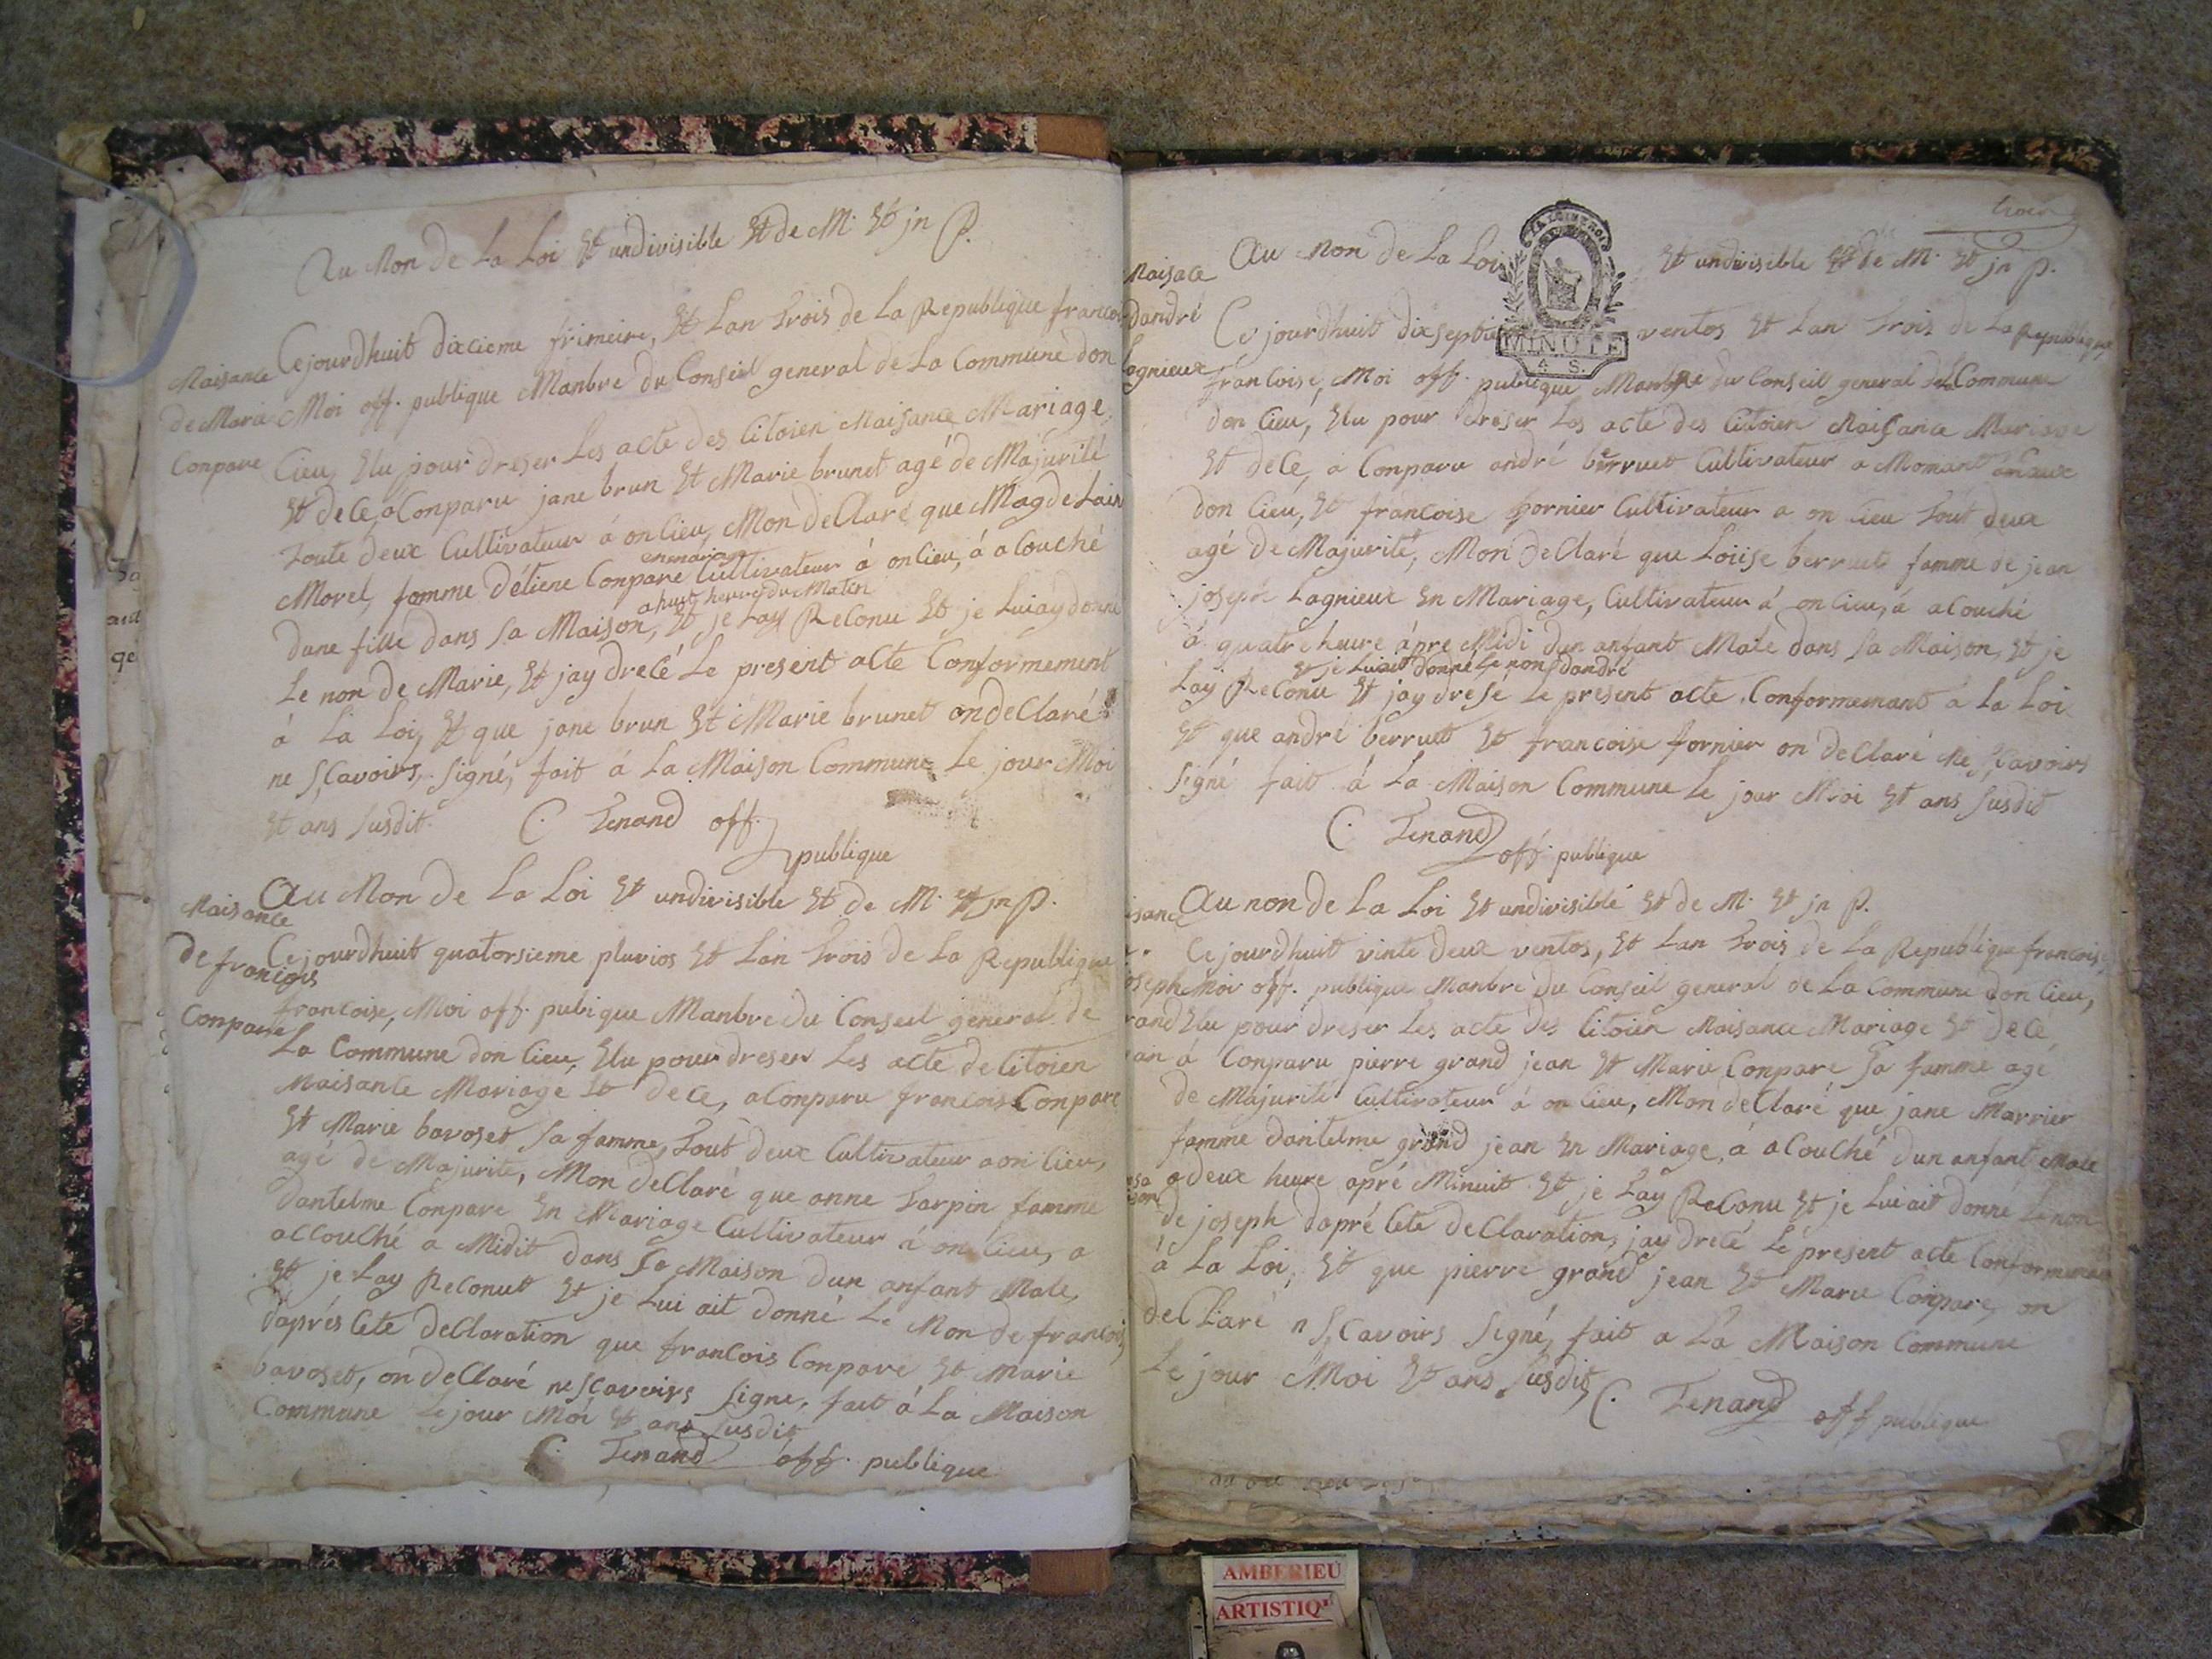 Au Non de La Loi Et undivisible Et de M. Et jn P.
Naisance
de Marie
Conpare
Cejourdhuit dixcieme frimeire, Et Lan trois de La Republique francois
Moi off. publique Manbre du Conseil general de La Commune don
Lieu, Elu pour dreser Les acte des Citoien Naisance Mariage,
Et dece, a Conparu jane brun Et Marie brunet agé de Majurité
toute deux Cultivateur á on Lieu, Mon deClaré que Magdelain
Morel, famme détiene Conpare en mariage Cultivateur á on Lieu, á acouché
dune fille dans sa Maison, a huit heure du Matin Et je Lay Reconu Et je Lui ay donné
Le non de Marie, Et jay drecé Le present acte Conformement
á La Loi, Et que jane brun Et Marie brunet on deClaré
ne sçavoirs, signé, fait á La Maison Commune Le jour Moi
Et ans susdit. C. Tenand off.
publique
Au Non de La Loi Et undivisible Et de M. Et jn P.
Naisance
de francois
Conpare
Cejourdhuit quatorsieme pluvios Et Lan trois de La Republique
francoise, Moi off. pubique Manbre du Conseil general de
La Commune don Lieu, Elu pour dreser Les acte de Citoien
Naisance Mariage Et dece, a Conparu francois Conpare
Et Marie bavoset sa famme, tout deux Cultivateur a on Lieu,
agé de Majurite, Mon deClaré que anne tarpin famme
dantelme Conpare En Mariage Cultivateur á on Lieu, a
accouché a Midit dans sa Maison dun anfant Male,
Et je Lay Reconut Et je Lui ait donné Le Non de francois,
daprés Cete deClaration que francois Conpare Et Marie
bavoset, on deClaré ne sçavoirs signe, fait á La Maison
Commune Le jour Moi Et ans susdit
C. Tenand off. publique
Au Non de La Loi Et undivisible Et de M. Et jn P.
Naisace
dandré
Lagnieux
MINUTE
4 S.
Ce jourdhuit dixseptie ventos Et Lan trois de La Republique
francoise, Moi off. publique Manbre du Conseil general de La Commune
don Lieu, Elu pour dreser Les acte des Citoien Naisance Mariage
Et dece, a Conparu andré berruet Cultivateur a Momant
don Lieu, Et francoise fornier Cultivateur a on Lieu tout deux
agé de Majurité, Mon deClaré que Loüise berruet famme de jean
joseph Lagnieux En Mariage, Cultivateur á on Lieu, á acouché
á quatre heure ápre Midi dun anfant Male dans sa Maison, Et je
Lay Reconu Et je Lui ait donné Le non dandré Et jay dresé Le present acte Conformemant á La Loi
Et que andré berruet Et francoise fornier on deClaré Ne sçavoirs
signé fait á La Maison Commune Le jour Moi Et ans susdit
C. Tenand
off. publique
Au non de La Loi Et undivisible Et de M. Et jn P.
Cejourdhuit vinte deux ventos, Et Lan trois de La Republique francoise,
Moi off. publique Manbre du Conseil general de La Commune don Lieu,
Elu pour dreser Les acte des Citoien Naisance Mariage Et dece,
á Conparu pierre grand jean Et Marie Conpare sa famme agé
de Majurité Cultivateur á on Lieu, Mon deClaré que jane Marrier
famme dantelme grand jean En Mariage, á acouché dun anfant Male
a deux heure apré Minuit Et je Lay Reconu Et je Lui ait donné Le non
de joseph dapré Cete deClaration, jay drecé Le present acte Conformemen
á La Loi, Et que pierre grand jean Et Marie Conpare, on
deClaré n sçavoirs signé, fait a La Maison Commune
Le jour Moi Et ans susdit, C. Tenand off publique
AMBERIEU
ARTISTIQ